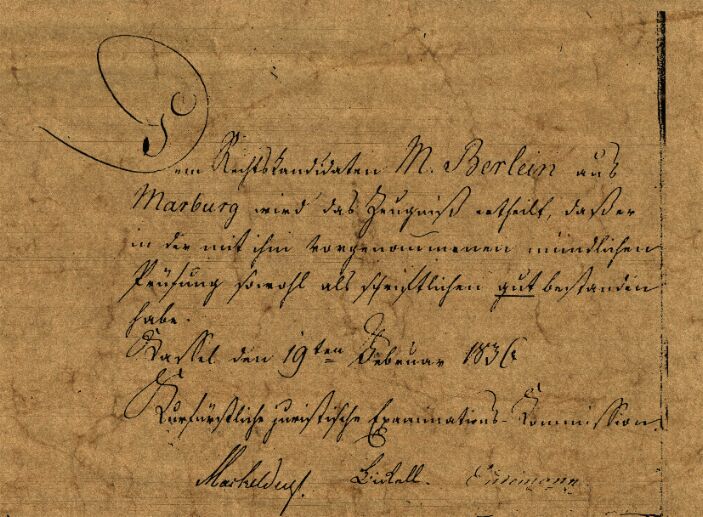 Dem Rechtskandidaten M. Berlein aus
Marburg wird das Zeugniß ertheilt, daß er
in der mit ihm vorgenommenen mündlichen
Prüfung sowohl als schriftlichen gut bestanden
habe.
Kassel den 19ten Februar 1836
Kurfürstliche juristische Examinations-Kommission.
Bickell.